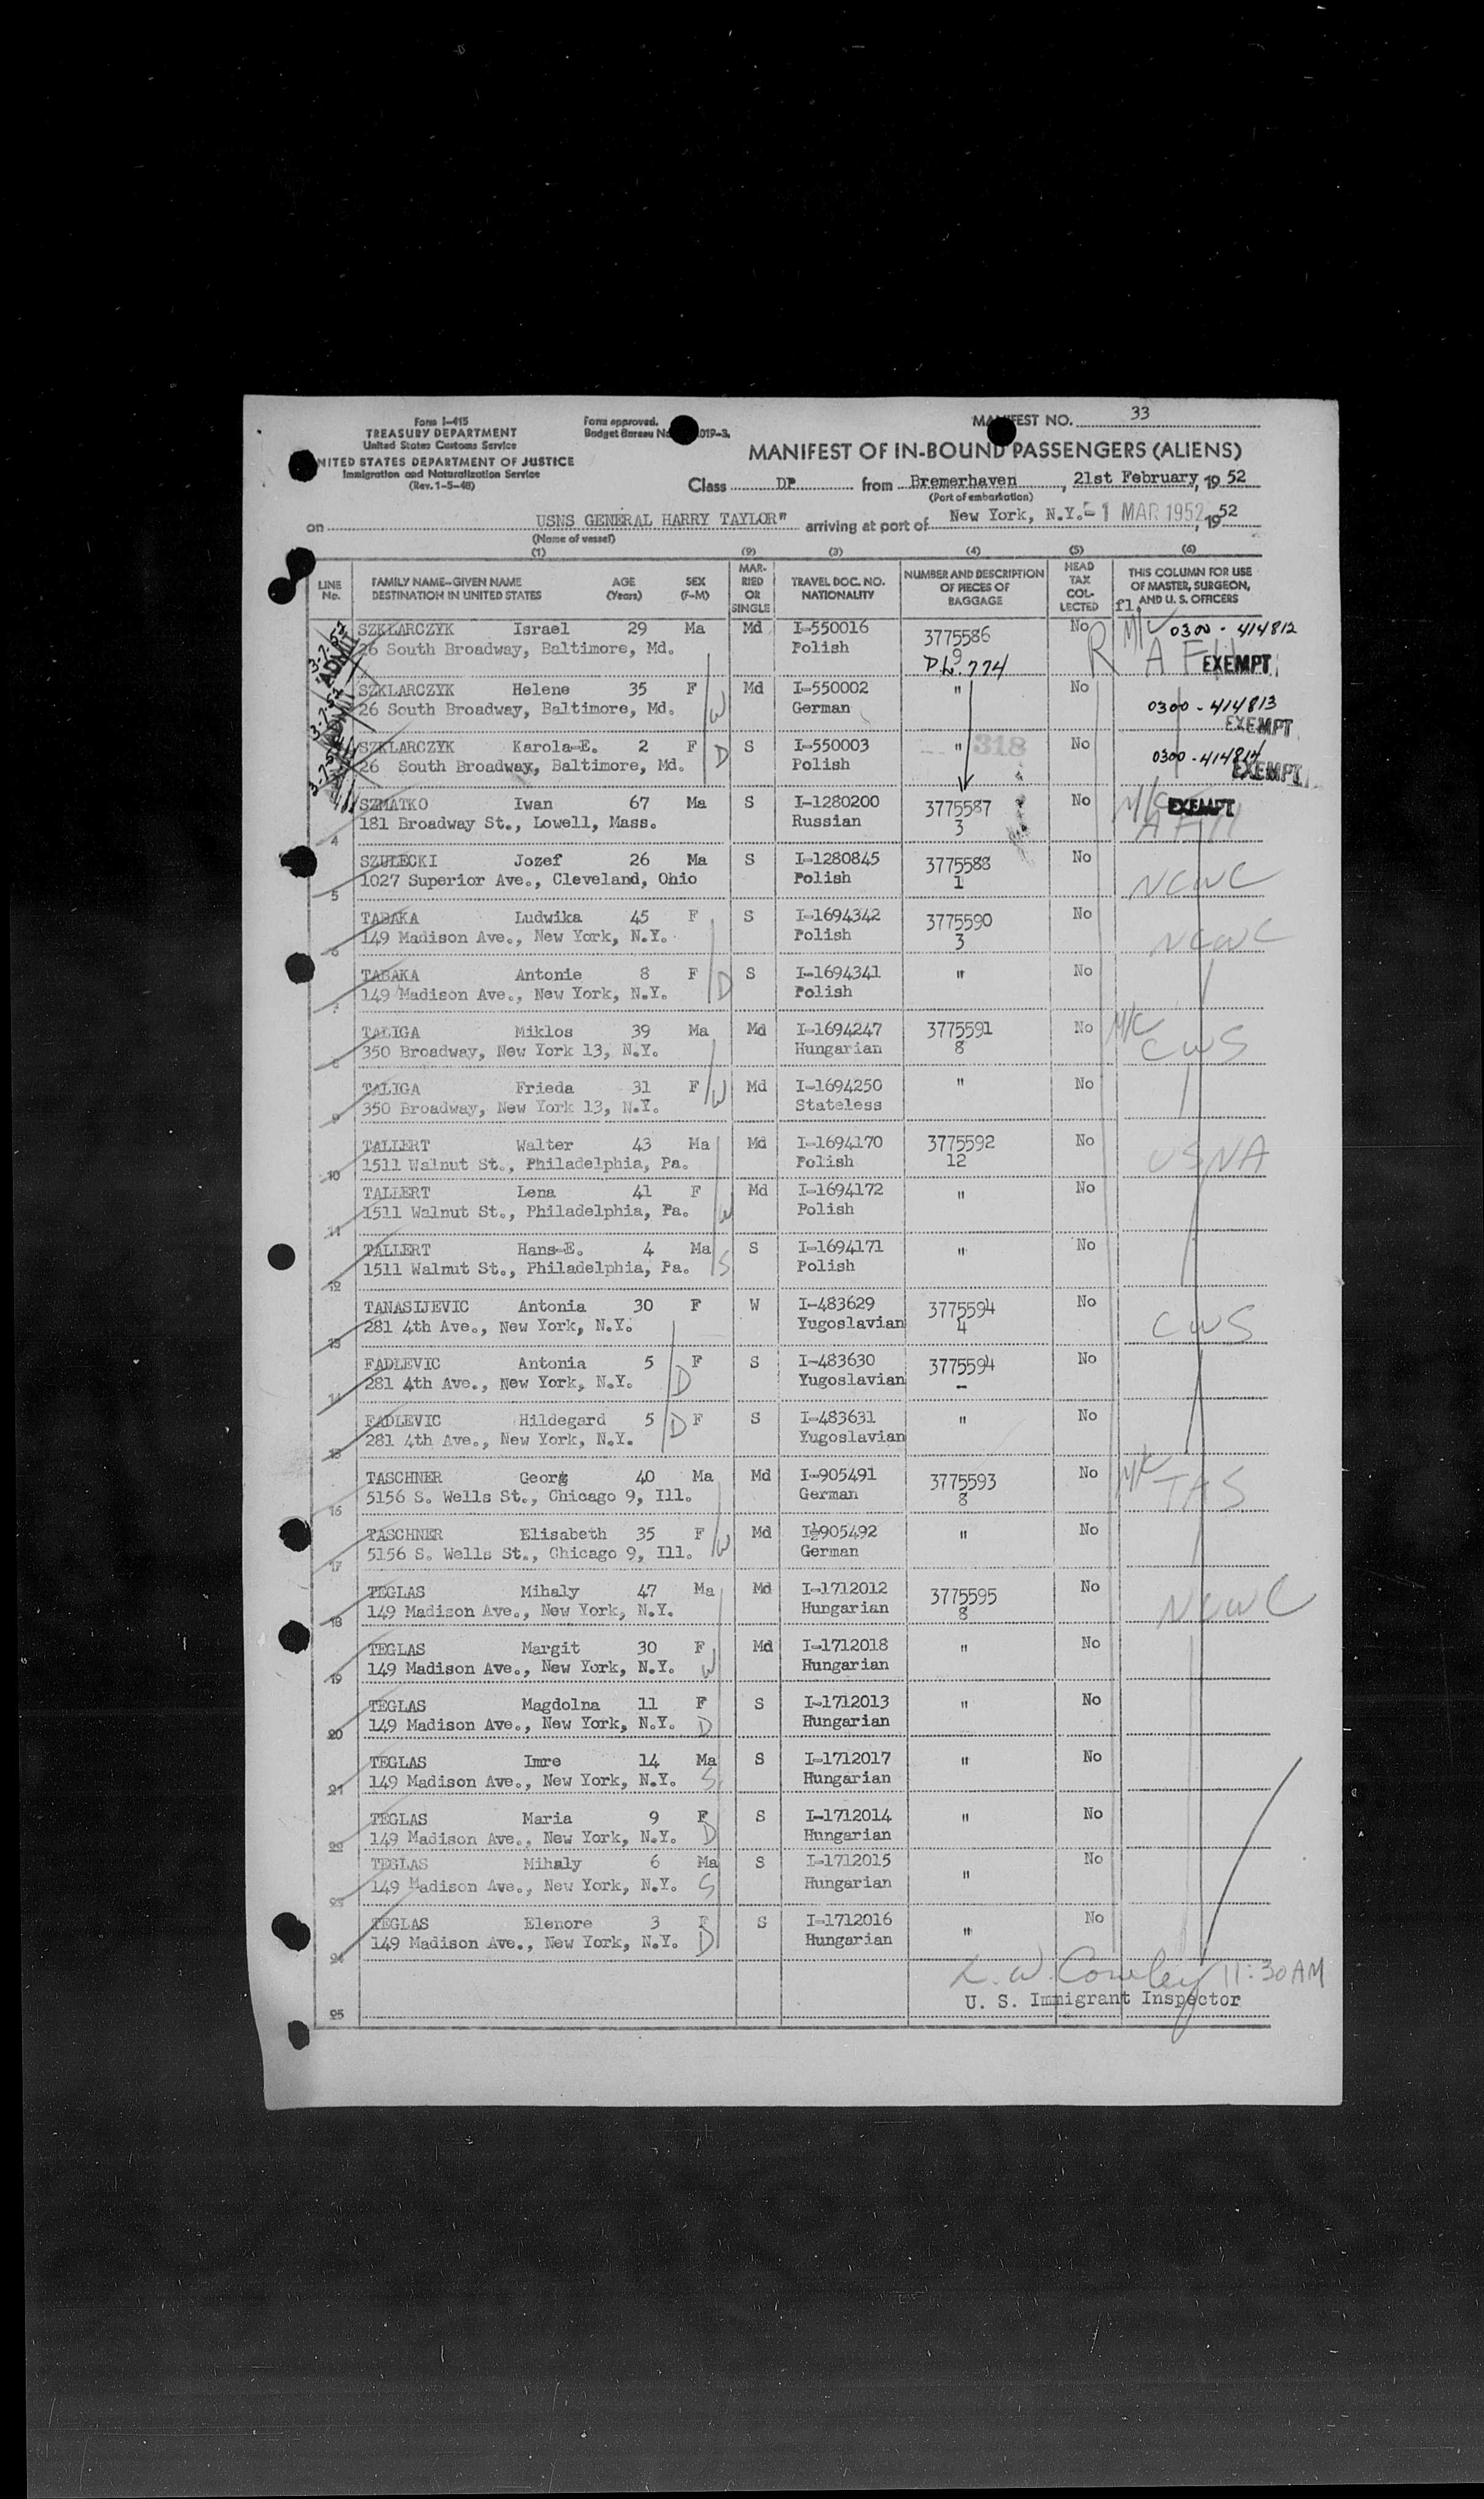 Form I-415
TREASURY DEPARTMENT
United States Customs Service
NITED STATES DEPARTMENT OF JUSTICE
Immigration and Naturalization Service
(Rev. 1-5-48)
Form approved.
Budget Bureau No. 019-3.
MANIFEST NO. 33
MANIFEST OF IN-BOUND PASSENGERS (ALIENS)
Class DP from Bremerhaven, 21st February, 1952
(Port of embarkation)
on USNS GENERAL HARRY TAYLOR" arriving at port of New York, N.Y. - 1 MAR 1952, 1952
(Name of vessel)
(1) (2) (3) (4) (5) (6)
LINE No. FAMILY NAME—GIVEN NAME DESTINATION IN UNITED STATES AGE (Years) SEX (F-M) MARRIED OR SINGLE TRAVEL DOC. NO. NATIONALITY NUMBER AND DESCRIPTION OF PIECES OF BAGGAGE HEAD TAX COLLECTED THIS COLUMN FOR USE OF MASTER, SURGEON, AND U. S. OFFICERS
fl.
3-7-52 ADMIT SZKLARCZYK Israel 29 Ma Md I-550016 3775586 No R M/C 0300 - 414812
26 South Broadway, Baltimore, Md. Polish 9 A F EXEMPT
D.L. 774
SZKLARCZYK Helene 35 F W Md I-550002 " No 0300 - 414813
26 South Broadway, Baltimore, Md. German EXEMPT
SZKLARCZYK Karola-E. 2 F D S I-550003 " 318 No 0300 - 414814
26 South Broadway, Baltimore, Md. Polish EXEMPT
SZMATKO Iwan 67 Ma S I-1280200 3775587 No M/C EXEMPT
4 181 Broadway St., Lowell, Mass. Russian 3
SZULECKI Jozef 26 Ma S I-1280845 3775588 No
5 1027 Superior Ave., Cleveland, Ohio Polish 1 NCWC
TABAKA Ludwika 45 F S I-1694342 3775590 No
6 149 Madison Ave., New York, N.Y. Polish 3 NCWC
TABAKA Antonie 8 F D S I-1694341 " No
7 149 Madison Ave., New York, N.Y. Polish
TALIGA Miklos 39 Ma Md I-1694247 3775591 No M/C
8 350 Broadway, New York 13, N.Y. Hungarian 8 CWS
TALIGA Frieda 31 F W Md I-1694250 " No
9 350 Broadway, New York 13, N.Y. Stateless
TALLERT Walter 43 Ma Md I-1694170 3775592 No
10 1511 Walnut St., Philadelphia, Pa. Polish 12 USNA
TALLERT Lena 41 F W Md I-1694172 " No
11 1511 Walnut St., Philadelphia, Pa. Polish
TALLERT Hans-E. 4 Ma S S I-1694171 " No
12 1511 Walnut St., Philadelphia, Pa. Polish
TANASIJEVIC Antonia 30 F W I-483629 3775594 No
13 281 4th Ave., New York, N.Y. Yugoslavian 4 CWS
FADLEVIC Antonia 5 D F S I-483630 3775594 No
14 281 4th Ave., New York, N.Y. Yugoslavian -
FADLEVIC Hildegard 5 D F S I-483631 " No
15 281 4th Ave., New York, N.Y. Yugoslavian
TASCHNER Georg 40 Ma Md I-905491 3775593 No M/C
16 5156 S. Wells St., Chicago 9, Ill. German 8
TASCHNER Elisabeth 35 F W Md I-905492 " No
17 5156 S. Wells St., Chicago 9, Ill. German
TEGLAS Mihaly 47 Ma Md I-1712012 3775595 No
18 149 Madison Ave., New York, N.Y. Hungarian 8 NCWC
TEGLAS Margit 30 F W Md I-1712018 " No
19 149 Madison Ave., New York, N.Y. Hungarian
TEGLAS Magdolna 11 F D S I-1712013 " No
20 149 Madison Ave., New York, N.Y. Hungarian
TEGLAS Imre 14 Ma S S I-1712017 " No
21 149 Madison Ave., New York, N.Y. Hungarian
TEGLAS Maria 9 F D S I-1712014 " No
22 149 Madison Ave., New York, N.Y. Hungarian
TEGLAS Mihaly 6 Ma S S I-1712015 " No
23 149 Madison Ave., New York, N.Y. Hungarian
TEGLAS Elenore 3 F D S I-1712016 " No
24 149 Madison Ave., New York, N.Y. Hungarian
L. W. Cowley 11:30 AM
U. S. Immigrant Inspector
25